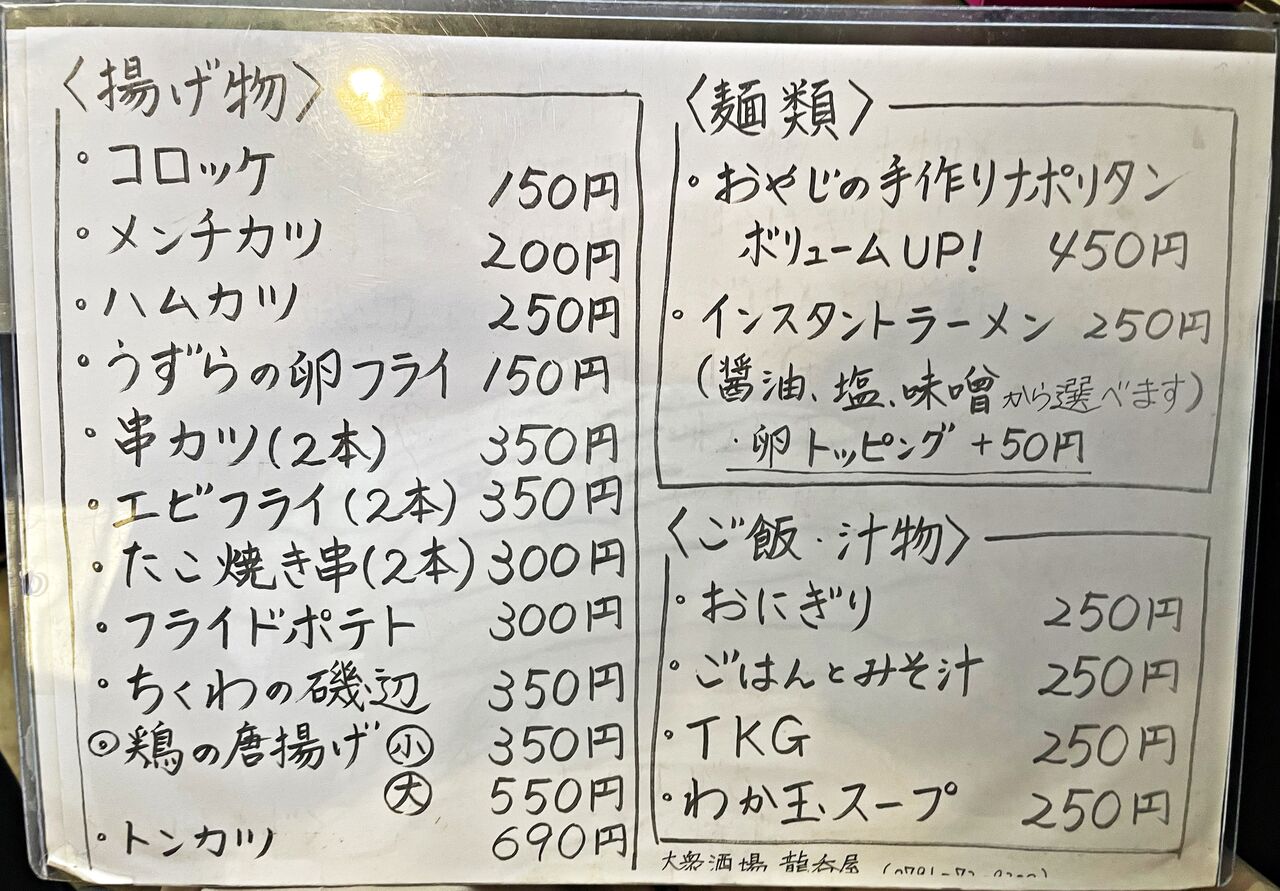 〈揚げ物〉
・コロッケ 150円
・メンチカツ 200円
・ハムカツ 250円
・うずらの卵フライ 150円
・串カツ(2本) 350円
・エビフライ(2本) 350円
・たこ焼き串(2本) 300円
・フライドポテト 300円
・ちくわの磯辺 350円
◎鶏の唐揚げ ㊙小 350円
大 550円
・トンカツ 690円
〈麺類〉
・おやじの手作りナポリタン
ボリュームUP! 450円
・インスタントラーメン 250円
(醤油、塩、味噌から選べます)
・卵トッピング +50円
〈ご飯・汁物〉
・おにぎり 250円
・ごはんとみそ汁 250円
・TKG 250円
・わか玉スープ 250円
大衆酒場 龍呑屋